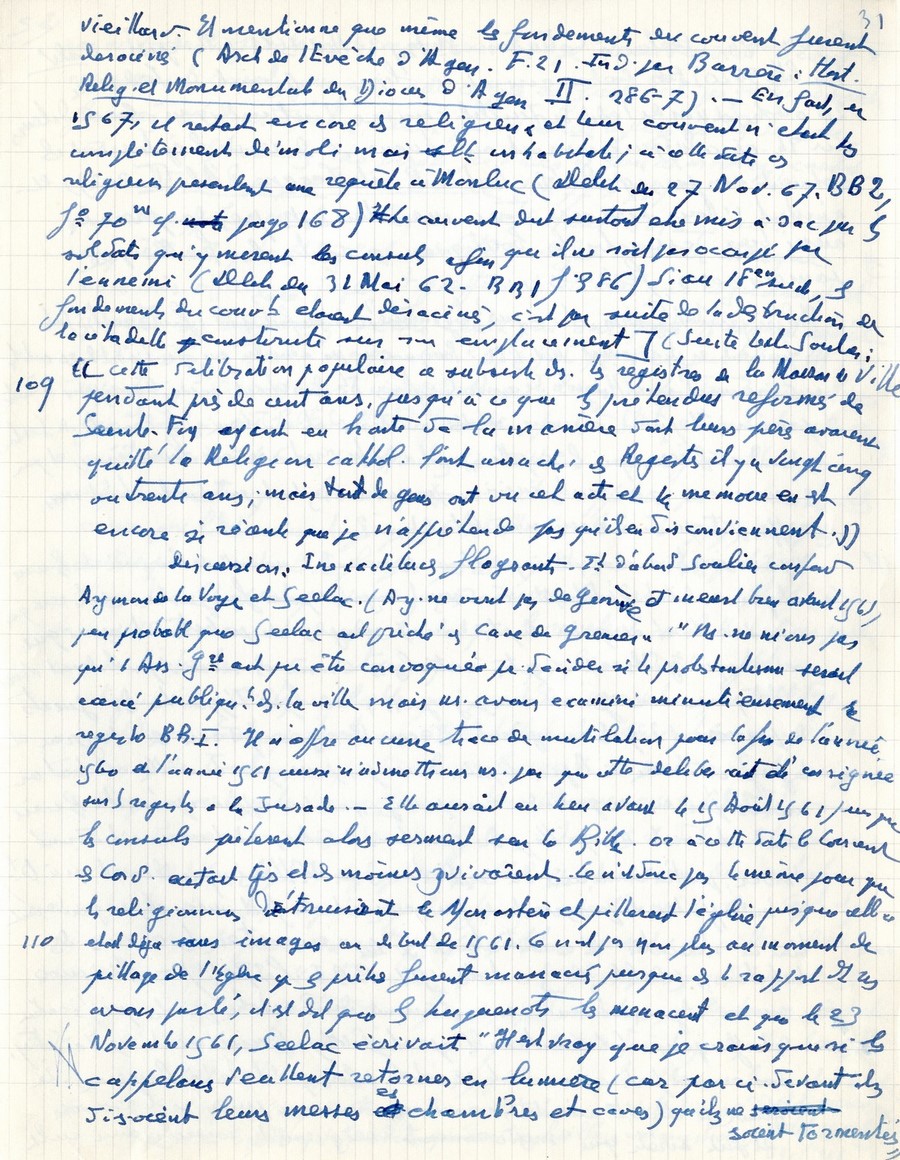 31
vieillard. Il mentionne que même les fondements du couvent furent
déracinés (Arch de l'Evêché d'Agen. F. 21. Ind. par Barrère: Hist.
Relig. et Monumentale du Diocèse d'Agen II. 286-7). — En fait, en
1567, il restait encore des religieux et leur couvent n'était pas
complètement démoli mais inhabitable; à cette date les
religieux présentent une requête à Monluc (Délib du 27 Nov. 67. BB2,
fo 70 cf. page 168) Le couvent dut surtout être mis à sac par les
soldats qui y mirent les consuls afin qu'il ne soit pas occupé par
l'ennemi (Délib du 31 Mai 62. BB1 f 386) Si au 18em siècle, les
fondements du couvt étaient déracinés, c'est par suite de la destruction de
la citadelle construite sur son emplacement ] (Suite texte Soulier:
109 Et cette délibération populaire a subsisté ds. les registres de la Maison de Ville
pendant près de cent ans, jusqu'à ce que les prétendus réformés de
Sainte-Foy ayant eu honte de la manière dont leurs pères avaient
quitté la Religion cathol. l'ont arraché des Registres il y a vingt cinq
ou trente ans; mais tant de gens ont vu cet acte et la mémoire en est
encore si récente que je n'appréhende pas qu'ils en disconviennent.))
Discussion. Inexactitudes flagrantes. Et d'abord Soulier confond
Aymon de la Voye et Seelac. (Ay. ne vint pas de Genève et meurt bien avant 1561,
peu probable que Seelac ait prêché ds cave de Grenier "Ns. ne nions pas
qu'1 Ass. Gle ait pu être convoquée pr. décider si le protestantisme serait
exercé publiqt. ds. la ville mais ns. avons examiné minutieusement le
registre BB.I. Il n'offre aucune trace de mutilation pour la fin de l'année
1560 et l'année 1561 aussi n'admettons ns. pas que cette délibér ait été consignée
sur les registres de la Jurade. — Elle aurait eu lieu avant le 15 Août 1561 puisque
les consuls prêtèrent alors serment sur la Bible. or à cette date le Couvent
des Cord. existait tjs et des moines y vivaient. Ce n'est donc pas le même jour que
les religionnaires détruisirent le Monastère et pillèrent l'église puisque celle-ci
110 était déjà sans images au début de 1561. Ce n'est pas non plus au moment du
pillage de l'Eglise q. les prêtres furent massacrés puisque ds le rapport dt ns
avons parlé, il est dit que les huguenots les menacent et que le 23
Novembre 1561, Seelac écrivait "Il est vray que je crains que si les
cappelans veullent retourner en lumière (car par ci-devant ils
disoient leurs messes es chambres et caves) qu'ilz ne
soient tormentés"